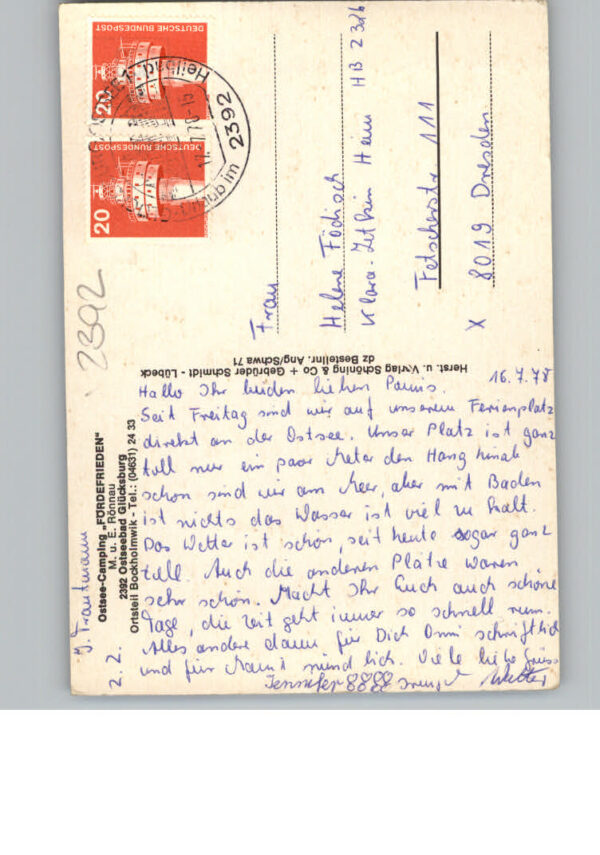 DEUTSCHE BUNDESPOST
20
DEUTSCHE BUNDESPOST
20
2392
Heilbad
2392
Frau
Helene Födisch
Klara-Zetkin Heim HB 2326
Fetscherstr 111
X 8019 Dresden
Herst. u. Verlag Schöning & Co + Gebrüder Schmidt - Lübeck
dz Bestellnr. Ang/Schwa 71
J. Trautmann
z. Z.
Ostsee-Camping „FÖRDEFRIEDEN"
M. u. E. Rönnau
2392 Ostseebad Glücksburg
Ortsteil Bockholmwik - Tel.: (04631) 24 33
16.7.78
Hallo Ihr beiden lieben
Seit Freitag sind wir auf unserem Ferienplatz
direkt an der Ostsee. Unser Platz ist ganz
toll nur ein paar Meter den Hang hinab
schon sind wir am Meer, aber mit Baden
ist nichts das Wasser ist viel zu kalt.
Das Wetter ist schön, seit heute sogar ganz
toll. Auch die anderen Plätze waren
sehr schön. Macht Ihr Euch auch schöne
Tage, die Zeit geht immer so schnell rum.
Alles andere dann für Dich Omi schriftlich
und für Mami mündlich. Viele liebe Grüsse
Jennifer Walter